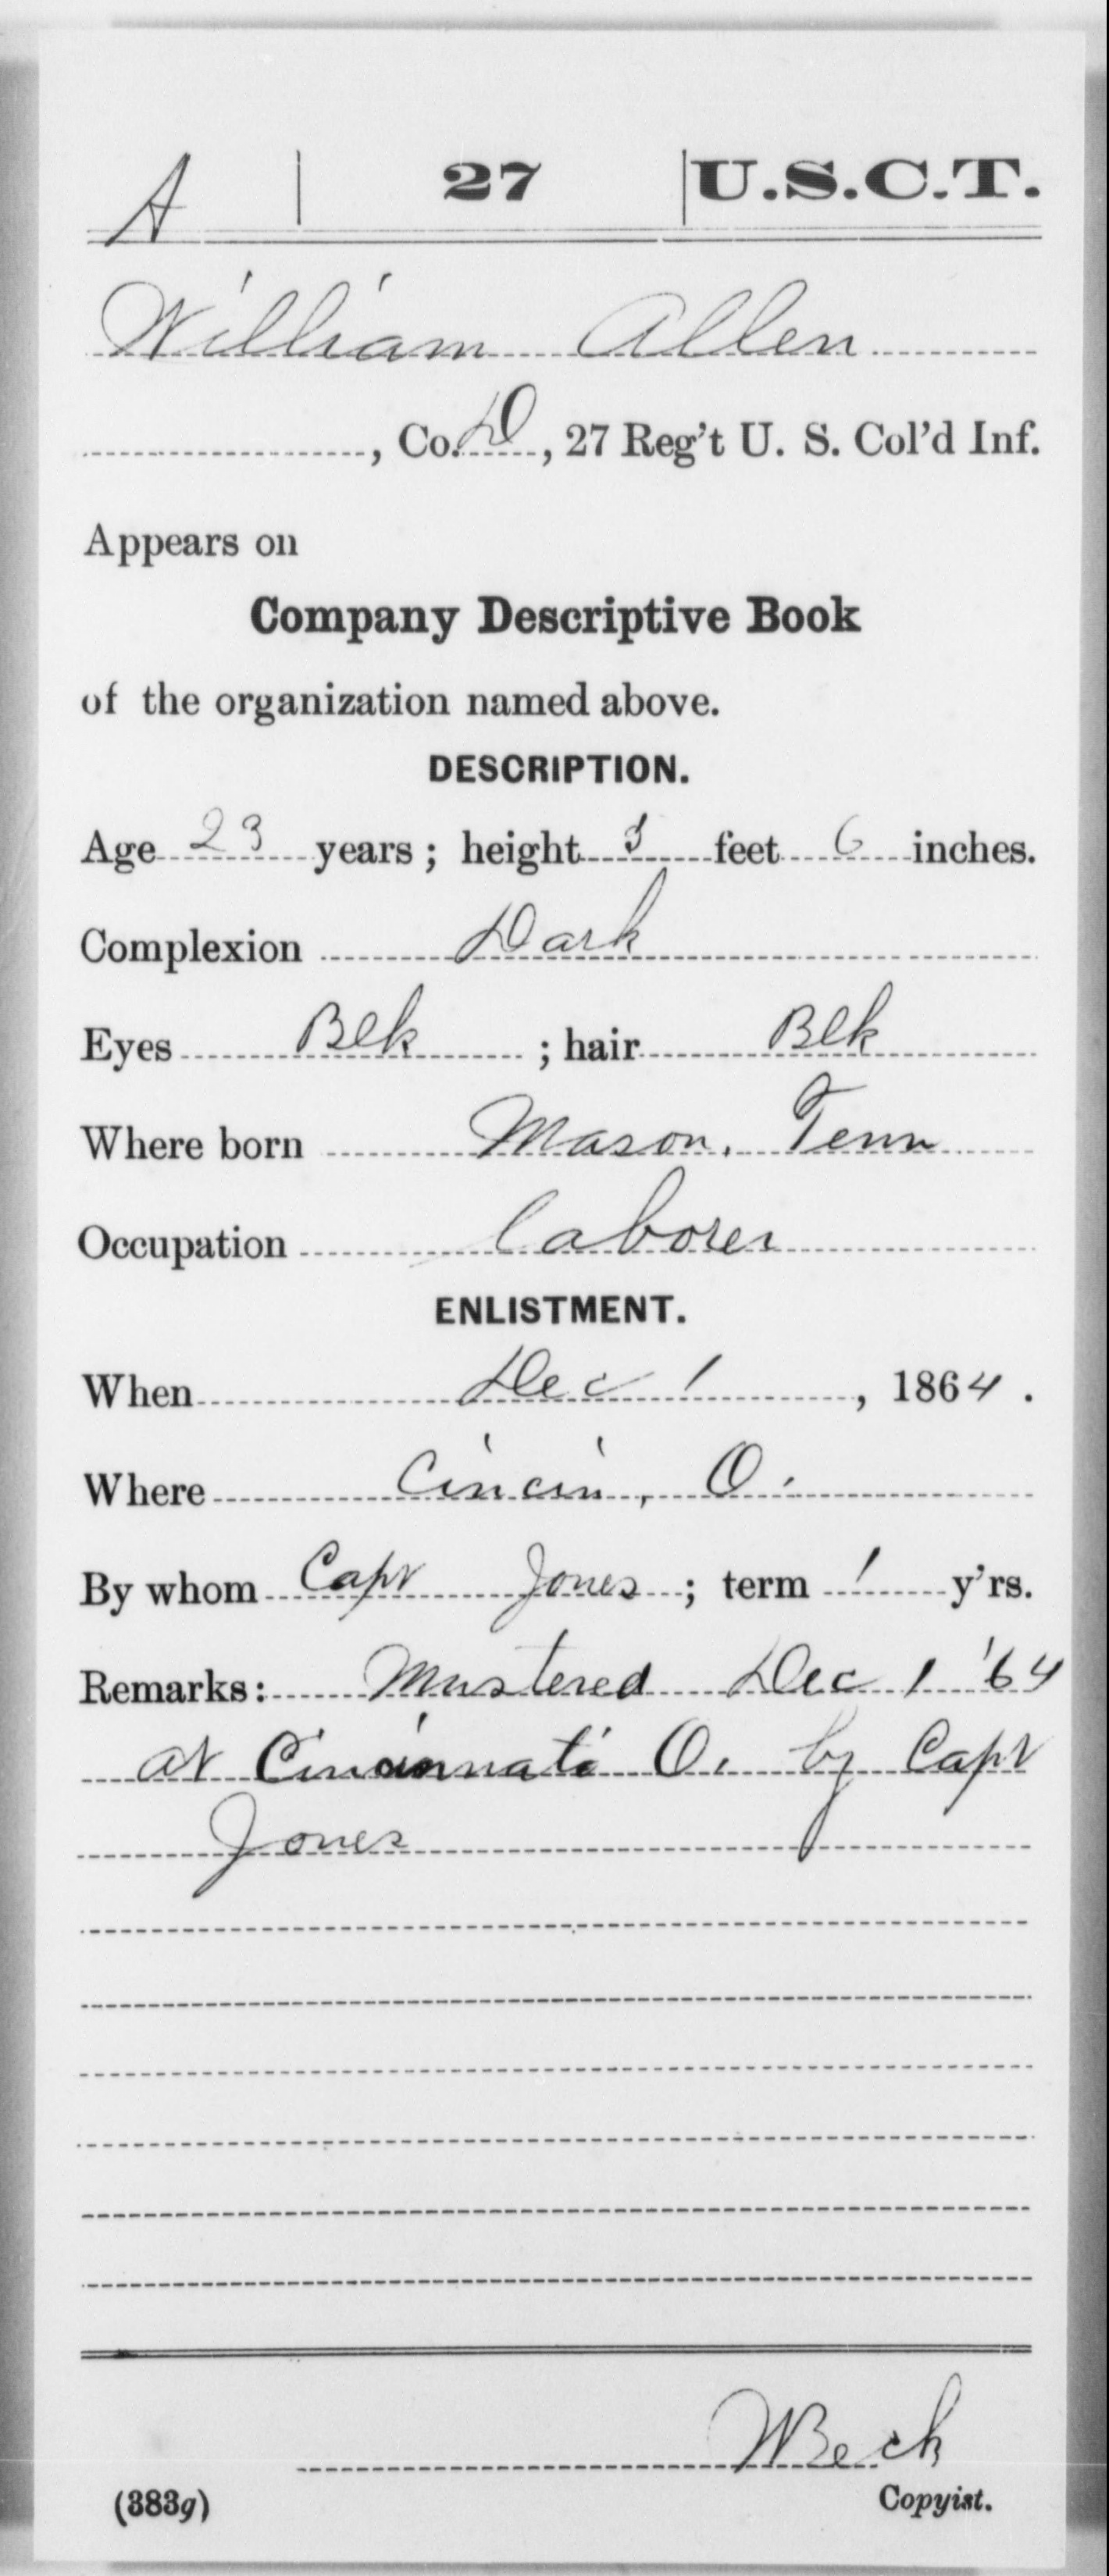 A | 27 | U.S.C.T.
William Allen
, Co. D, 27 Reg't U. S. Col'd Inf.
Appears on
Company Descriptive Book
of the organization named above.
DESCRIPTION.
Age 23 years; height 5 feet 6 inches.
Complexion Dark
Eyes Blk ; hair Blk
Where born Mason, Tenn
Occupation laborer
ENLISTMENT.
When Dec 1, 1864.
Where Cincin, O.
By whom Capt Jones; term 1 y'rs.
Remarks: Mustered Dec 1 '64
at Cincinnati O. by Capt
Jones
WBeck
(383g) Copyist.